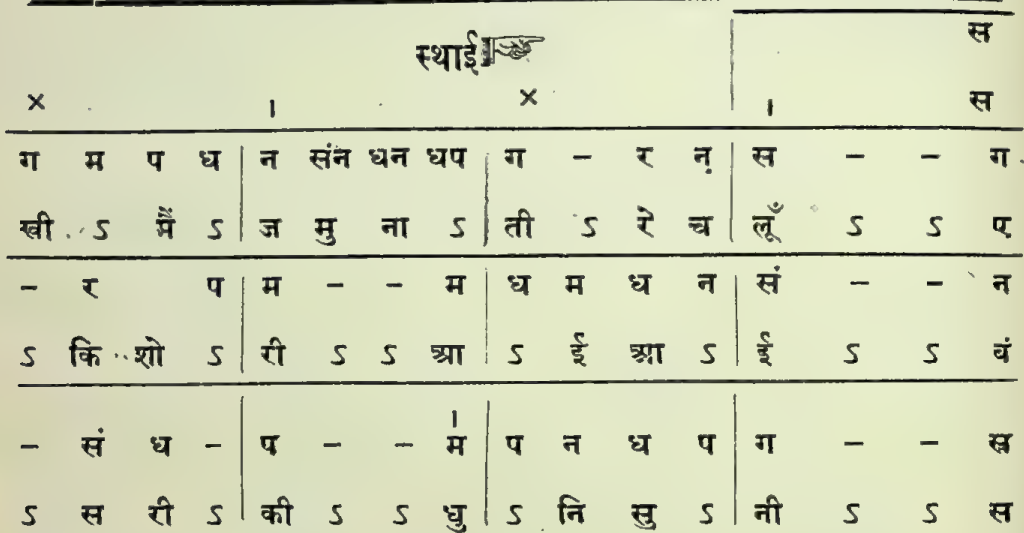 स
स्थाई
× । × । स
ग म प ध | न संन धन धप | ग – र ऩ | स – – ग
खी ऽ मैं ऽ | ज मु ना ऽ | ती ऽ रे च | लूँ ऽ ऽ ए
– र प | म – – म | ध म ध न | सं – – न
ऽ कि शो ऽ | री ऽ ऽ आ | ऽ ई आ ऽ | ई ऽ ऽ बं
– सं ध – | प – – म॑ | प न ध प | ग – – स
ऽ स री ऽ | की ऽ ऽ धु | ऽ नि सु ऽ | नी ऽ ऽ स